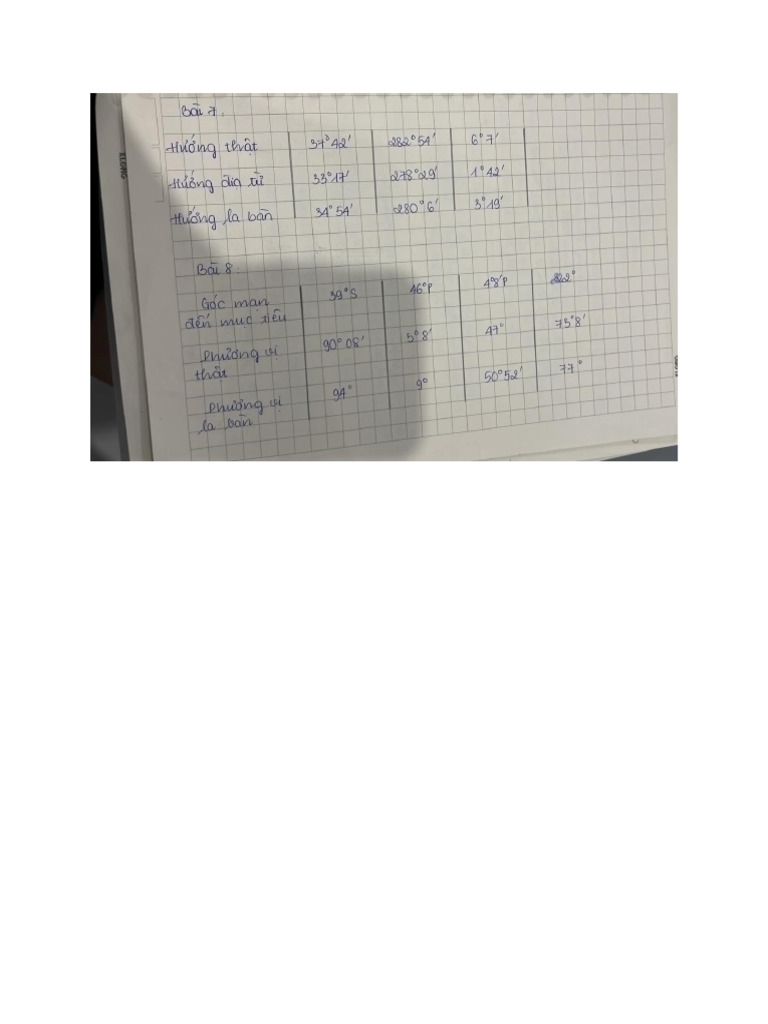 Bài 7.
Hướng thật 37°42' 282°54' 6°7'
Hướng địa từ 33°17' 278°29' 1°42'
Hướng la bàn 34°54' 280°6' 3°19'
Bài 8.
Góc mạn đến mục tiêu 39°S 46°P 222°
Phương vị thật 90°08' 5°8' 47° 75°8'
Phương vị la bàn 94° 9° 50°52' 77°